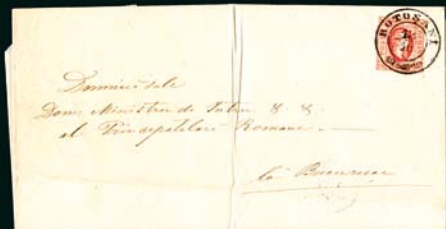 BOTUSANI
Domniei Sale
Domn Ministru de
al Principatelor Romane
la Bucuresci